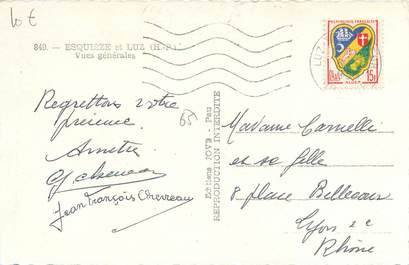 10 €
849. - ESQUIEZE et LUZ (H.-P.)
Vues générales
REPUBLIQUE FRANÇAISE
15F
ALGER
LUZ
Regrettons votre
présence.
65
Jean François Chevreau
Editions JOVE - Pau
REPRODUCTION INTERDITE
Madame Camelli
et sa fille
8 place Bellecour
Lyon 2e
Rhône